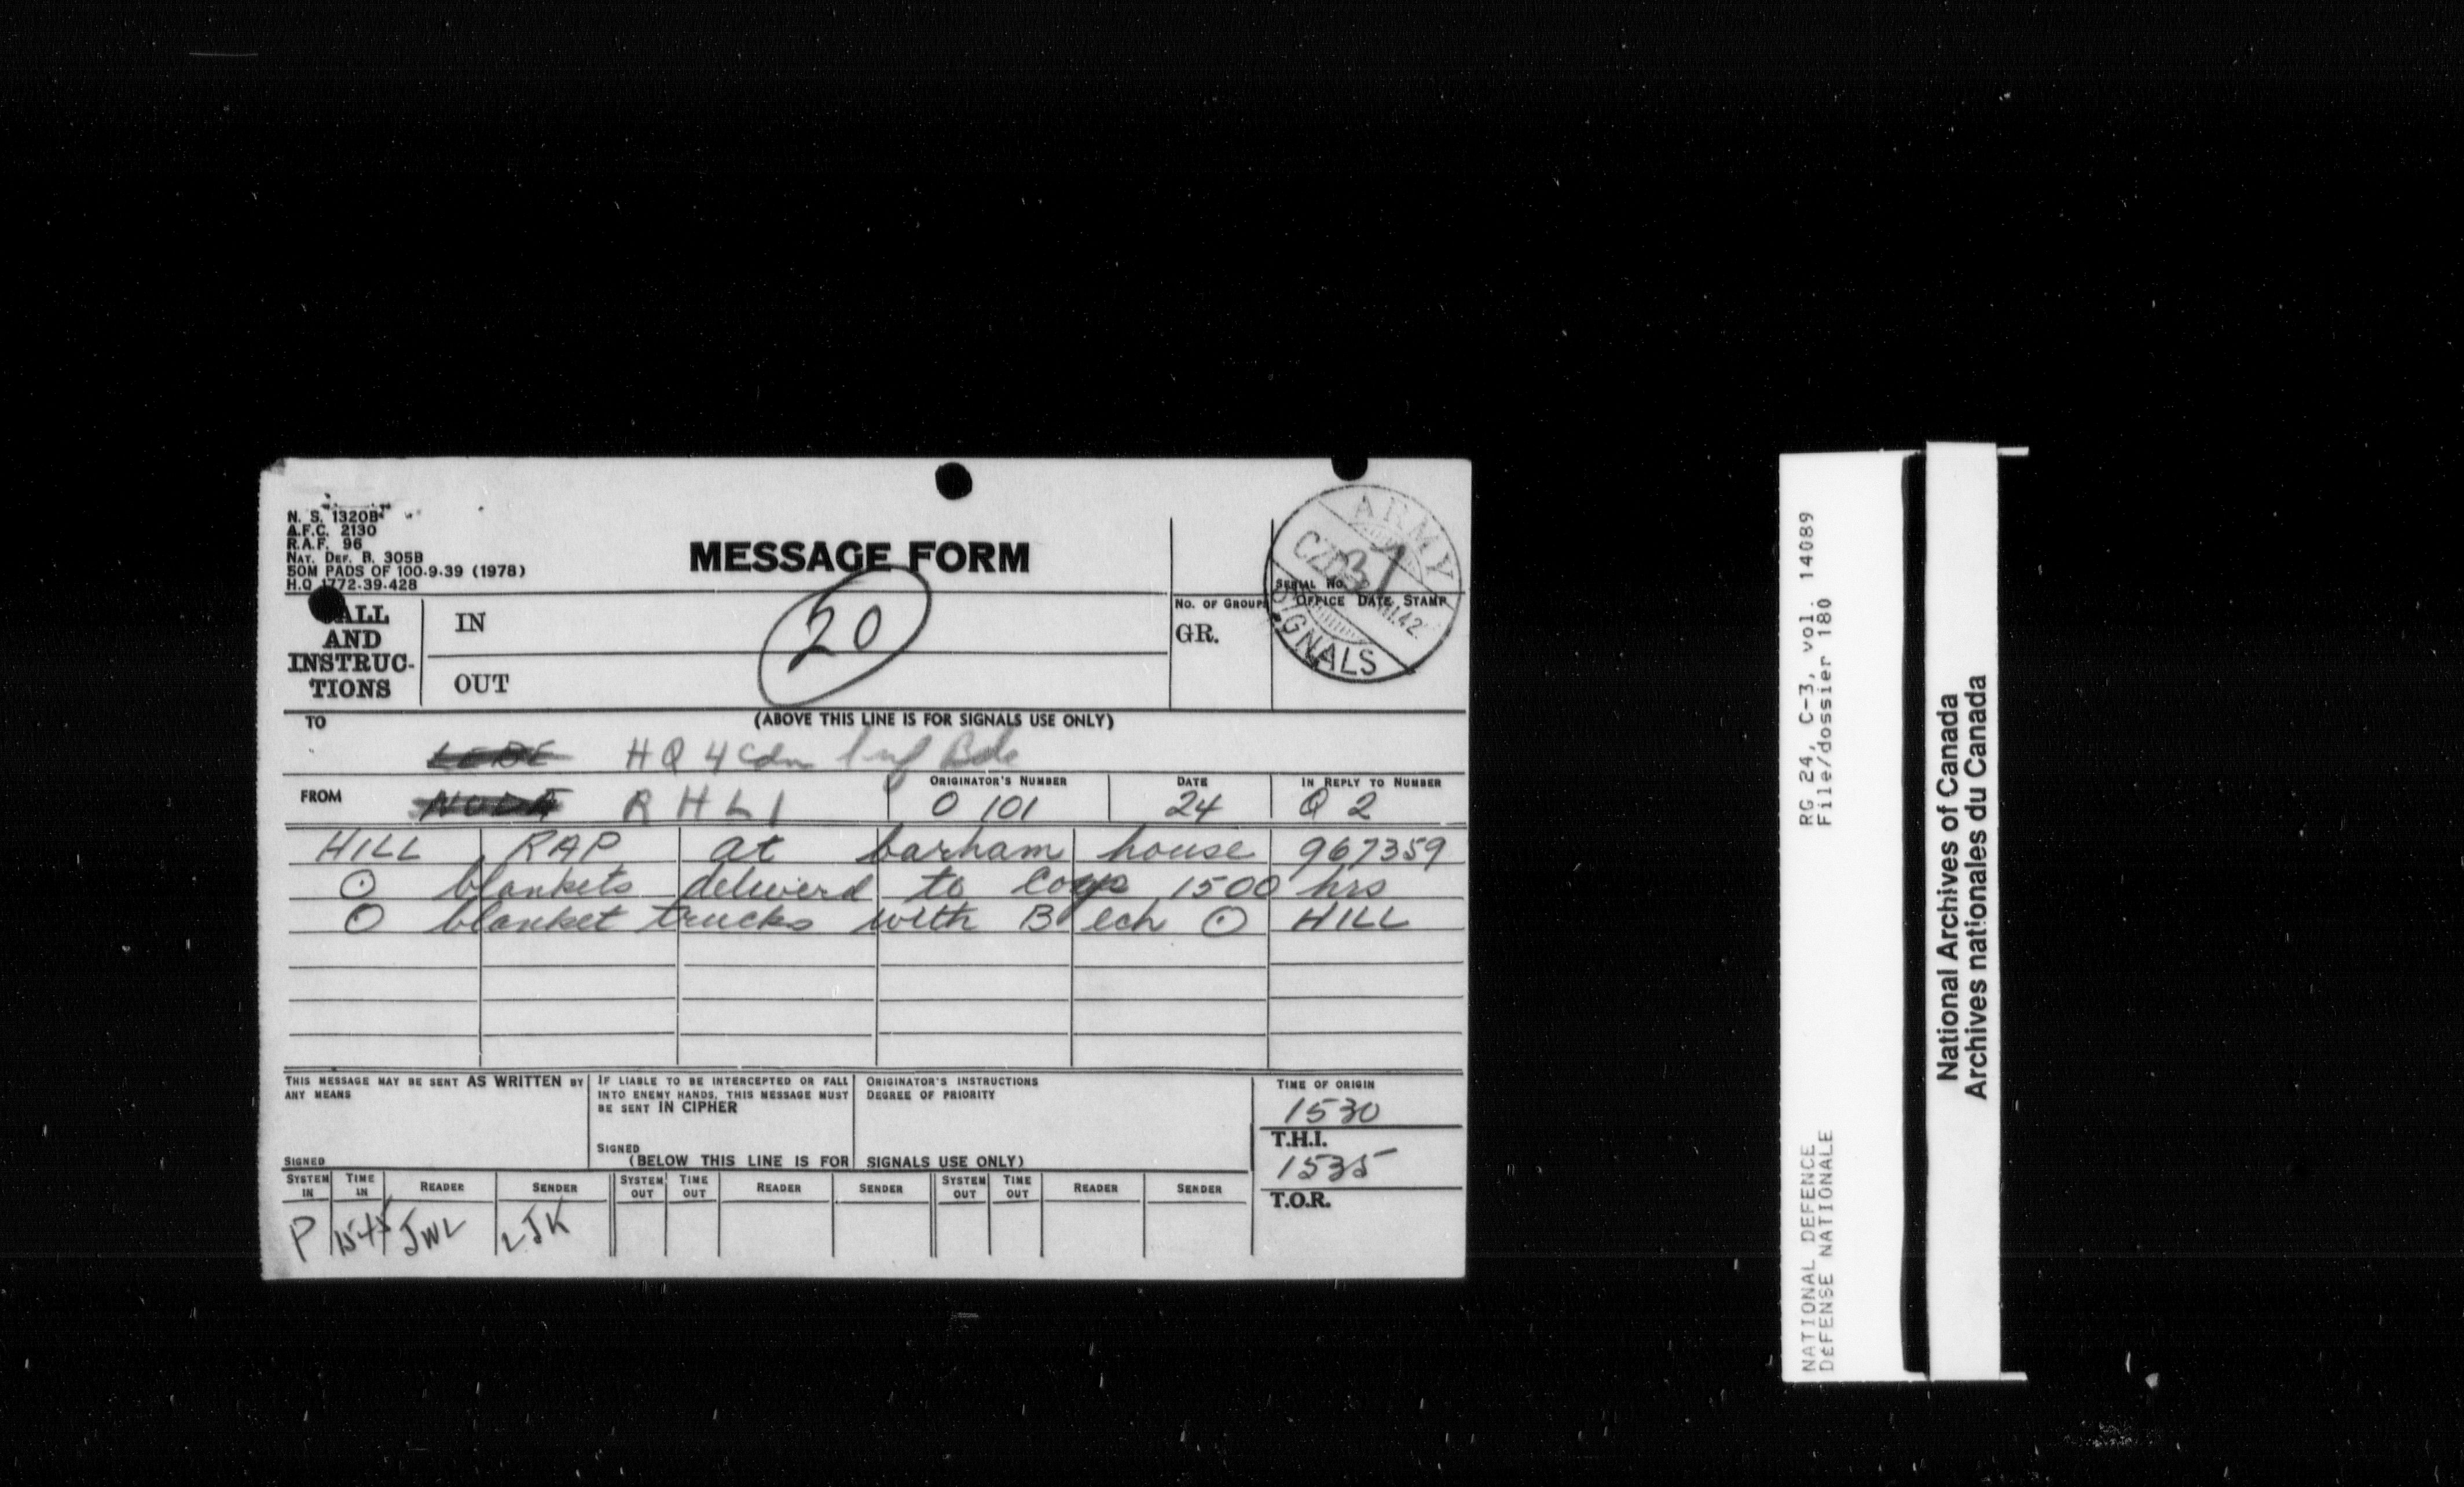 N. S. 1320B
A.F.C. 2130
R.A.F. 96
NAT. DEF. B. 305B
50M PADS OF 100-9-39 (1978)
H.Q. 1772-39-428
MESSAGE FORM
ARMY
SIGNALS
37
SERIAL NO.
OFFICE DATE STAMP
NO. OF GROUPS
GR.
CALL AND INSTRUC-TIONS
IN
OUT
20
(ABOVE THIS LINE IS FOR SIGNALS USE ONLY)
TO
HQ 4 Cdn Inf Bde
FROM
RHLI
ORIGINATOR'S NUMBER
O 101
DATE
24
IN REPLY TO NUMBER
Q 2
HILL RAP at barham house 967359
⊙ blankets deliverd to coys 1500 hrs
⊙ blanket trucks with B ech ⊙ HILL
THIS MESSAGE MAY BE SENT AS WRITTEN BY ANY MEANS
SIGNED
IF LIABLE TO BE INTERCEPTED OR FALL INTO ENEMY HANDS, THIS MESSAGE MUST BE SENT IN CIPHER
SIGNED
ORIGINATOR'S INSTRUCTIONS
DEGREE OF PRIORITY
TIME OF ORIGIN
1530
T.H.I.
1535
T.O.R.
(BELOW THIS LINE IS FOR SIGNALS USE ONLY)
SYSTEM IN TIME IN READER SENDER SYSTEM OUT TIME OUT READER SENDER SYSTEM OUT TIME OUT READER SENDER
P 1545 JWL LJK
RG 24, C-3, vol. 14089
File/dossier 180
NATIONAL DEFENCE
DÉFENSE NATIONALE
National Archives of Canada
Archives nationales du Canada